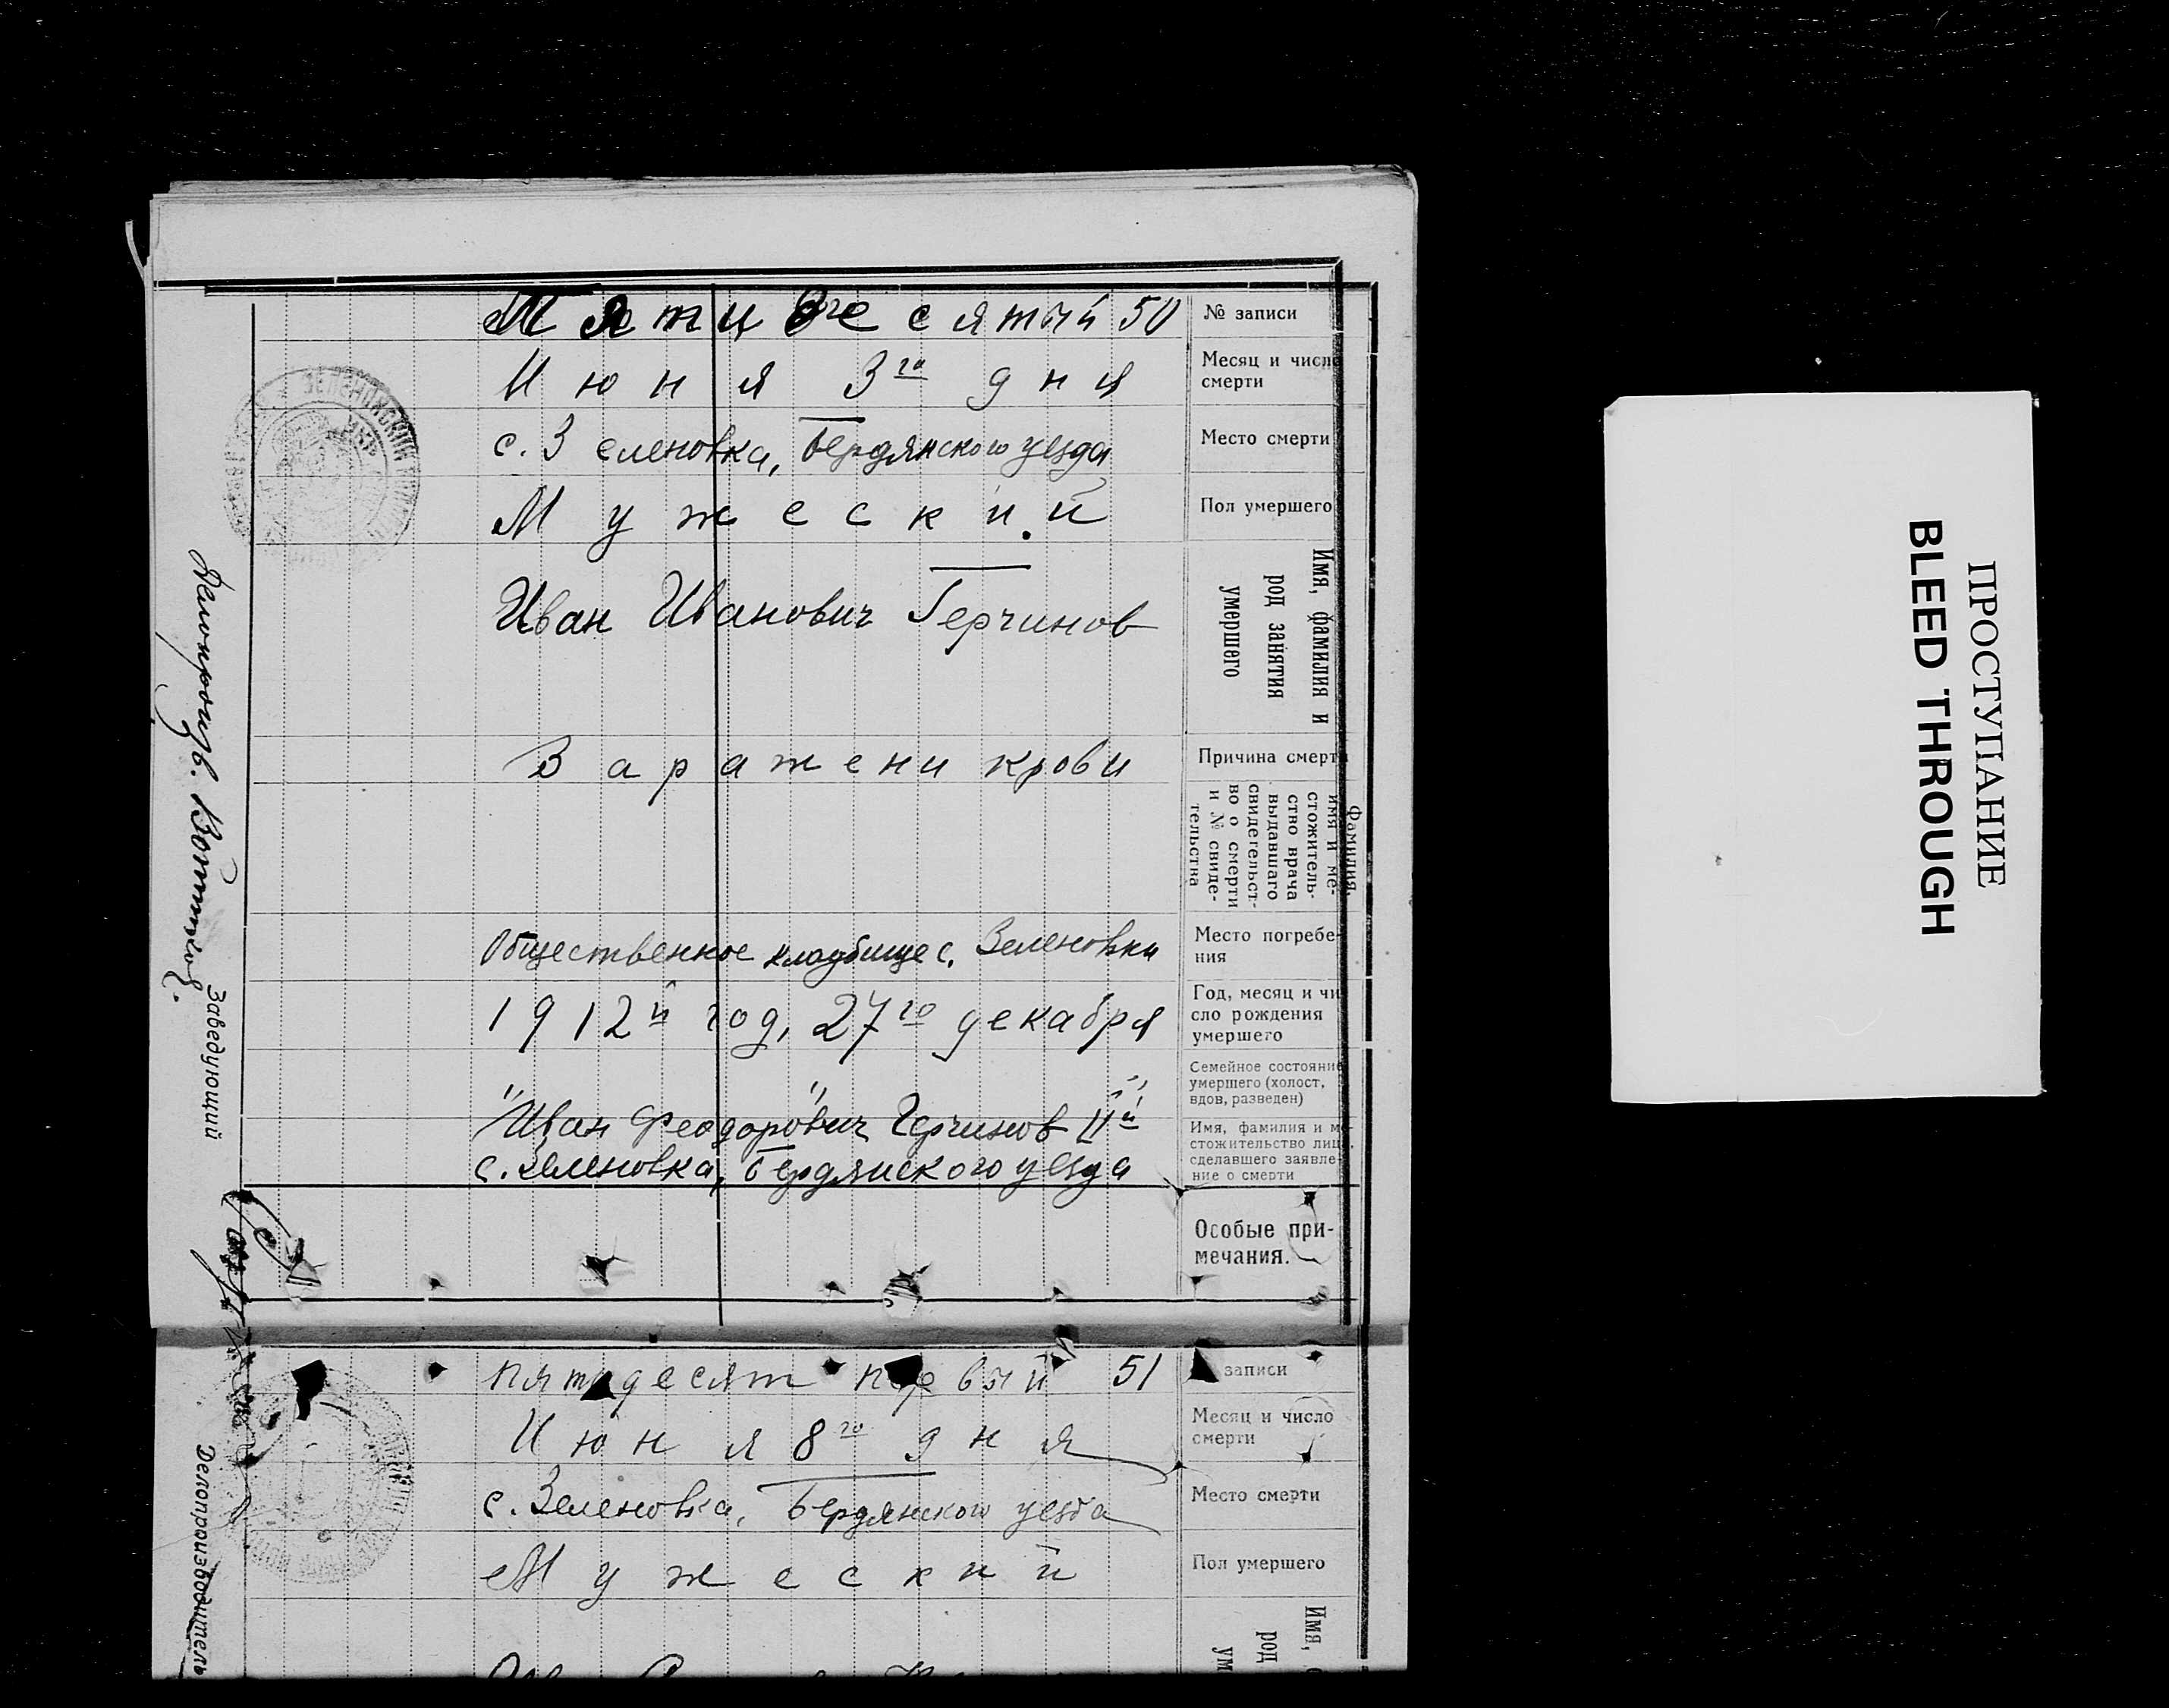 Пятидесятый 50
№ записи
Июня 3го дня
Месяц и число
смерти
с. Зеленовка, Бердянского уезда
Место смерти
Мужеский
Пол умершего
Иван Иванович Герчинов
Имя, фамилия и
род занятия
умершего
Заражени крови
Причина смерти
Фамилия,
имя и ме-
стожитель-
ство врача
выдавшаго
свидетельст-
во о смерти
и № свиде-
тельства
Общественное кладбище с. Зеленовки
Место погребе-
ния
1912й год, 27го декабря
Год, месяц и чи
сло рождения
умершего
Семейное состояние
умершего (холост,
вдов, разведен)
"Иван Феодорович" Герчинов IIй
с. Зеленовка, Бердянского уезда
Имя, фамилия и ме
стожительство лица,
сделавшего заявле-
ние о смерти
Особые при-
мечания.
Делопроизв.
Заведующий
пятьдесят первый 51
записи
Июня 8го дня
Месяц и число
смерти
с. Зеленовка, Бердянского уезда
Место смерти
Мужеский
Пол умершего
Имя,
род
ум
Делопроизводитель
ПРОСТУПАНИЕ
BLEED THROUGH